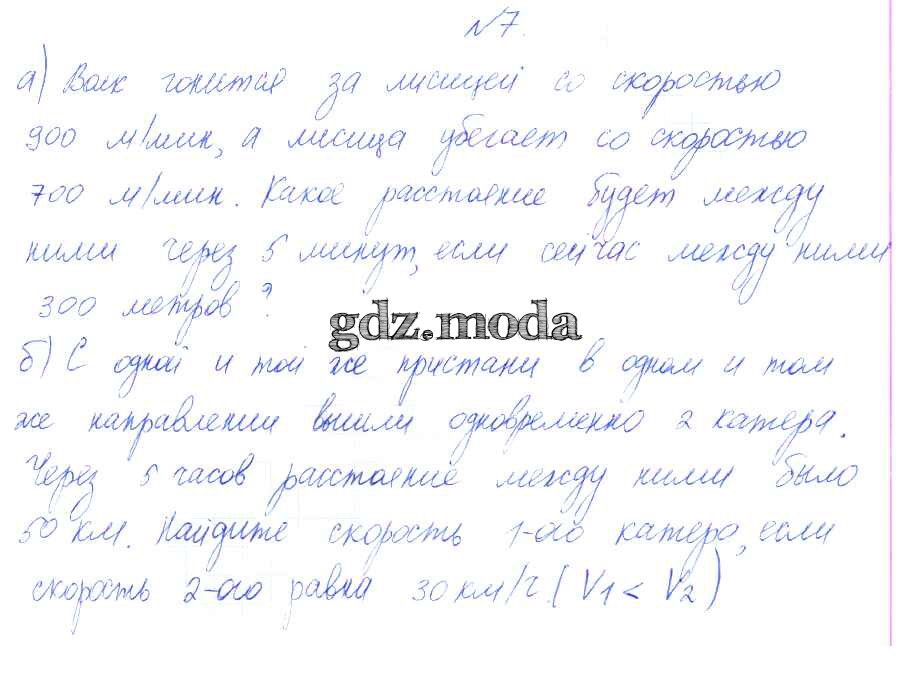 №7.
а) Волк гонится за лисицей со скоростью
900 м/мин, а лисица убегает со скоростью
700 м/мин. Какое расстояние будет между
ними через 5 минут, если сейчас между ними
300 метров?
gdz.moda
б) С одной и той же пристани в одном и том
же направлении вышли одновременно 2 катера.
Через 5 часов расстояние между ними было
50 км. Найдите скорость 1-ого катера, если
скорость 2-ого равна 30 км/ч. (V1 < V2)